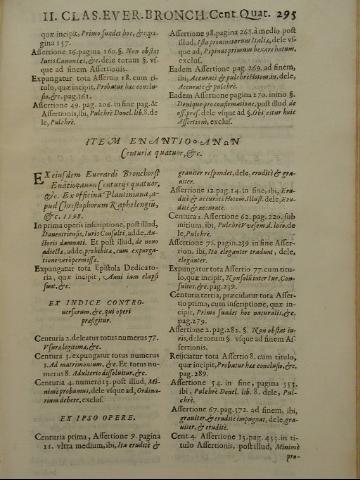 II. CLAS. EVER. BRONCH. Cent. Quat. 295
quæ incipit, Primo suades hoc, &c. pagina 157.
Assertione 16. pagina 160. §. Non obstat
Iuris Canonici, &c. dele totum §. vsque
ad finem Assertionis.
Expungatur tota Assertio 18. cum titulo,
quæ incipit, Probatus hac conclusio,
&c. pag. 161.
Assertione 49. pag. 206. in fine pag. &
Assertionis, ibi, Pulchrè Donel. lib. 8. dele,
Pulchrè.
Assertione 98. pagina 265. à medio, post
illud, dele vsque
ad, exclus.
Eadem Assertione pag. 269. ad finem,
ibi, Accuratè & pulchrè Hotom. in, dele,
Accuratè & pulchrè.
Eadem Assertione pagina 270. initio §.
Denique pro confirmatione, post illud de
off. præs. dele vsque ad §. Obstat
Assertioni, exclus.
ITEM ENANTIOΦANΩN
Centuriæ quatuor, &c.
EX eiusdem Euerardi Bronchorst
Enantioφανῶν Centuriis quatuor,
&c. Ex officina Plantiniana, apud
Christophorum Raphelengium,
&c. 1598.
In prima operis inscriptione, post illud,
Dauentriensis, Iuris Consulti, adde, Auctoris
damnati. Et post illud, de nouo
adiecta, adde, prohibita, cum expurgatione
verò permissa.
Expungatur tota Epistola Dedicatoria,
quæ incipit, Anni iam elapsi
sunt, &c.
EX INDICE CONTROuersiarum,
& c. qui operi
præfigitur.
Centuria 2. deleatur totus numerus 77.
Vsura legitima, &c.
Centuria 3. expungatur totus numerus
3. Ad matrimonium, &c. Et totus numerus
8. Adulterio dissoluitur, &c.
Centuria 4. numero 13. post illud, Minimè
probamus, dele vsque ad, Ordinarium
debere, exclus.
EX IPSO OPERE.
Centuria prima, Assertione 9. pagina
21. vltra medium, ibi, Ita eruditè &
grauiter respondet, dele, eruditè & grauiter.
Assertione 12. pag. 14. in fine, ibi, Eruditè
& accuratè Hotom. Illust. dele, eruditè
& accuratè.
Centura 2. Assertione 62. pag. 220. sub
initium, ibi, Pulchrè Vesem. d. loco, dele,
Pulchrè.
Assertione 76. pagin. 239. in fine Assertion.
ibi, Ita eleganter tradunt, dele,
eleganter.
Expungatur tota Assertio 77. cum titulo,
quæ incipit, Nonsolùm inter Iur. Consultos,
&c. pag. 239.
Centuria tertia, præcidatur tota Assertio
prima, cum inscriptione, quæ incipit,
Primo suades hoc
pag. 279.
Assertione 2. pag. 282. §. Non obstat iuris,
dele totum §. vsque ad finem Assertionis.
Reijciatur tota Assertio 8. cum titulo,
quæ incipit, Probatur hac conclusio, &c.
pag. 289.
Assertione 54. in fine, pagina 353.
ibi, Pulchrè Donel. lib. 8. dele, Pulchrè.
Assertione 67. pag. 172. ad finem, ibi,
grauiter & eruditè impugnat, dele, grauiter,
& eruditè.
Cent. 4. Assertione 13. pag. 455. in titulo
Assertionis, post illud, Minimè
pro-